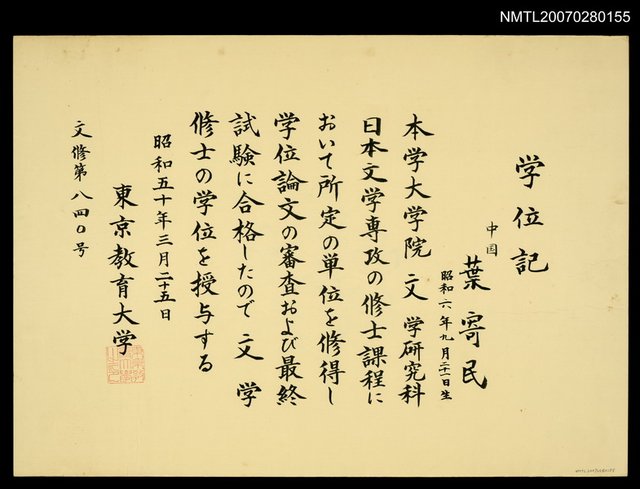 NMTL20070280155
学位記
中国
葉寄民
昭和六年九月二十一日生
本学大学院文学研究科
日本文学専攻の修士課程に
おいて所定の単位を修得し
学位論文の審査および最終
試験に合格したので文学
修士の学位を授与する
昭和五十年三月二十五日
東京教育大学
文修第八四〇号